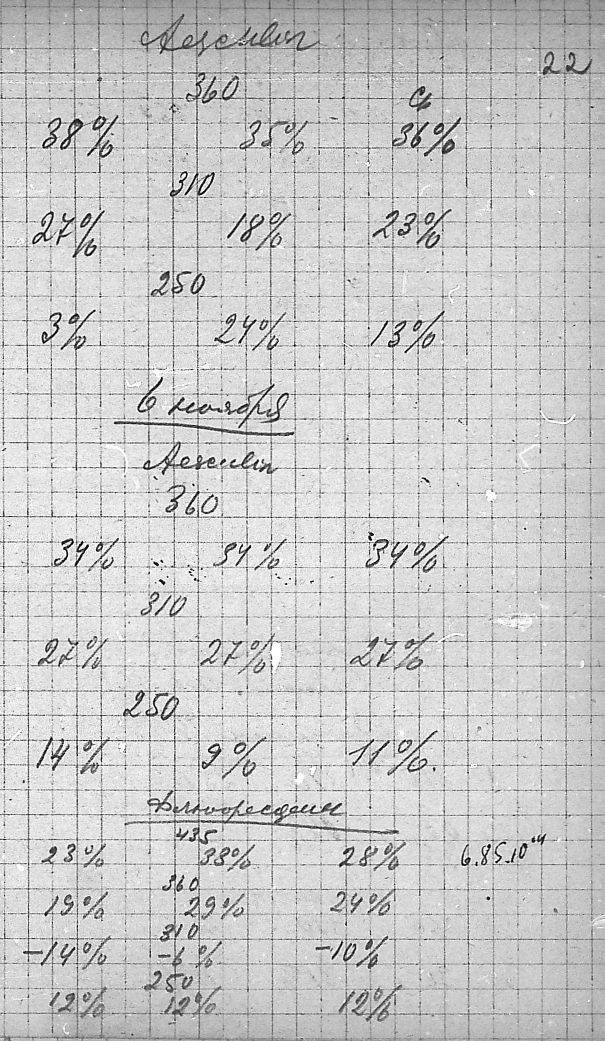 Aesculin
22
360 ср
38% 35% 36%
310
27% 18% 23%
250
3% 24% 13%
6 ноября
Aesculin
360
34% 34% 34%
310
27% 27% 27%
250
14% 9% 11%.
Флюоресцеин
435
23% 33% 28% 6.85.10⁻⁴
360
19% 29% 24%
310
-14% -6% -10%
250
12% 12% 12%